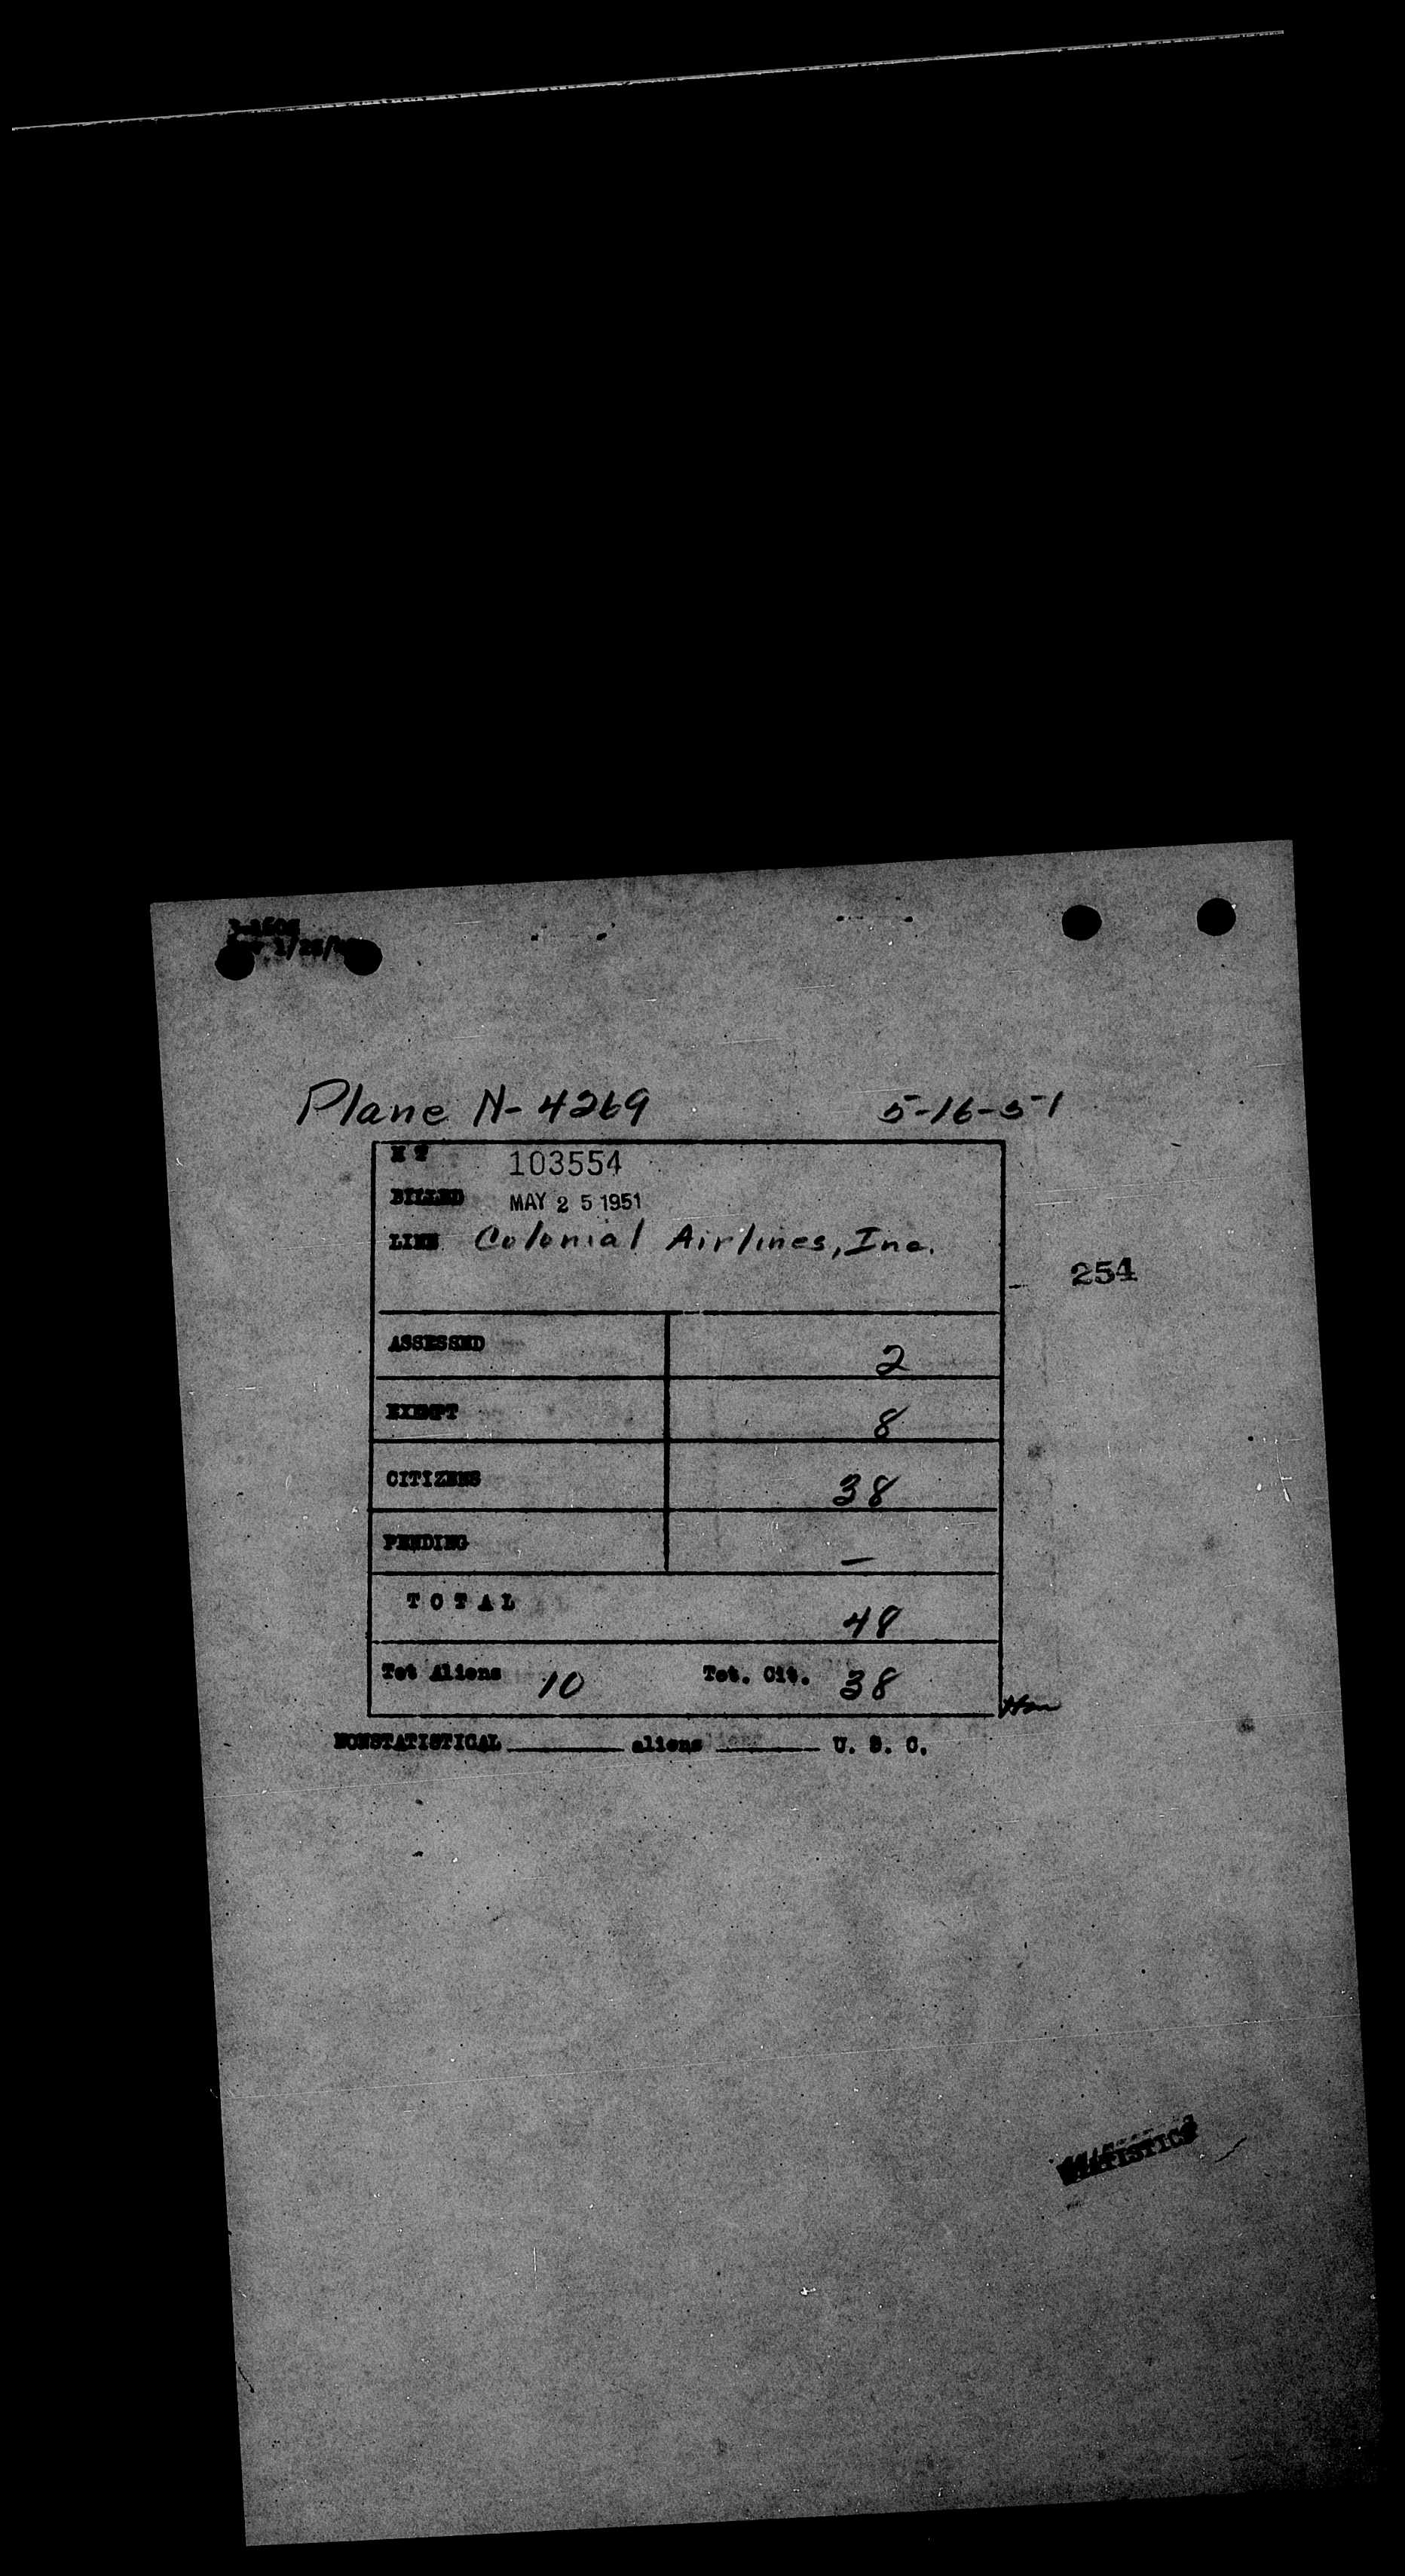 Plane N-4269 5-16-51
103554
BILLED MAY 25 1951
LINE Colonial Airlines, Inc.
254
ASSESSED 2
EXEMPT 8
CITIZENS 38
PENDING —
TOTAL 48
Tot Aliens 10 Tot. Cit. 38
NONSTATISTICAL ________ aliens ________ U. S. C.
STATISTICS